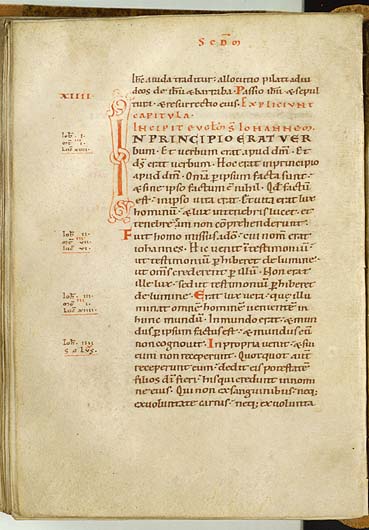 SCDM
XIIII
ihc a iuda traditur. allocutio pilati ad iu
deos de ihu & barraba. Passio ihu & sepul
tura. & resurrectio eius. EXPLICIUNT
CAPITULA.
INCIPIT EVGLM S IOHANNEM.
IN PRINCIPIO ERAT VER
bum. Et uerbum erat apud dm. Et
ds erat uerbum. Hoc erat in principio
apud dm. Omia p ipsum facta sunt.
& sine ipso factum e nihil. Qd factu
est. in ipso uita erat. Et uita erat lux
hominu. & lux in tenebris lucet. et
tenebre eam non coprehenderunt.
Fuit homo missus a do. cui nom erat
iohannes. Hic uenit in testimoniu
ut testimoniu phiberet de lumine.
ut oms crederent p illu. Non erat
ille lux. sed ut testimoniu phiberet
de lumine. Erat lux uera. que illu
minat omne homine ueniente in
hunc mundu. In mundo erat. & mun
dus p ipsum factus est. & mundus eu
non cognouit. In propria uenit. & sui
eum non receperunt. Quotquot aut
receperunt eum. dedit eis potestate
filios di fieri. his qui credunt in nomi
ne eius. Qui non ex sanguinibus. neq;
ex uoluntate carnis. neq; ex uolunta